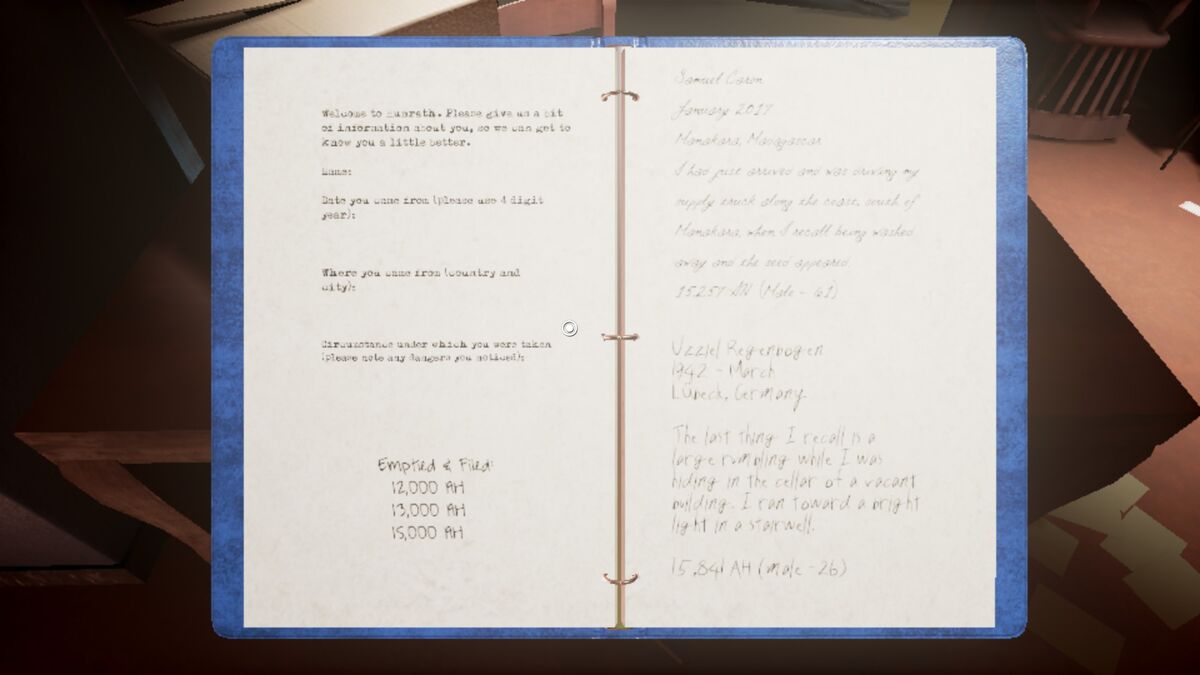 Welcome to Hunrath. Please give us a bit
of information about you, so we can get to
know you a little better.
Name:
Date you came from (please use 4 digit
year):
Where you came from (country and
city):
Circumstance under which you were taken
(please note any dangers you noticed):
Emptied & Filed:
12,000 AH
13,000 AH
15,000 AH
Samuel Caron
January 2017
Manakara, Madagascar
I had just arrived and was driving my
supply truck along the coast, south of
Manakara, when I recall being washed
away and the seed appeared.
15,257 AH (Male - 61)
Uzziel Regenbogen
1942 - March
Lübeck, Germany
The last thing I recall is a
large rumbling while I was
hiding in the cellar of a vacant
building. I ran toward a bright
light in a stairwell.
15,841 AH (male - 26)